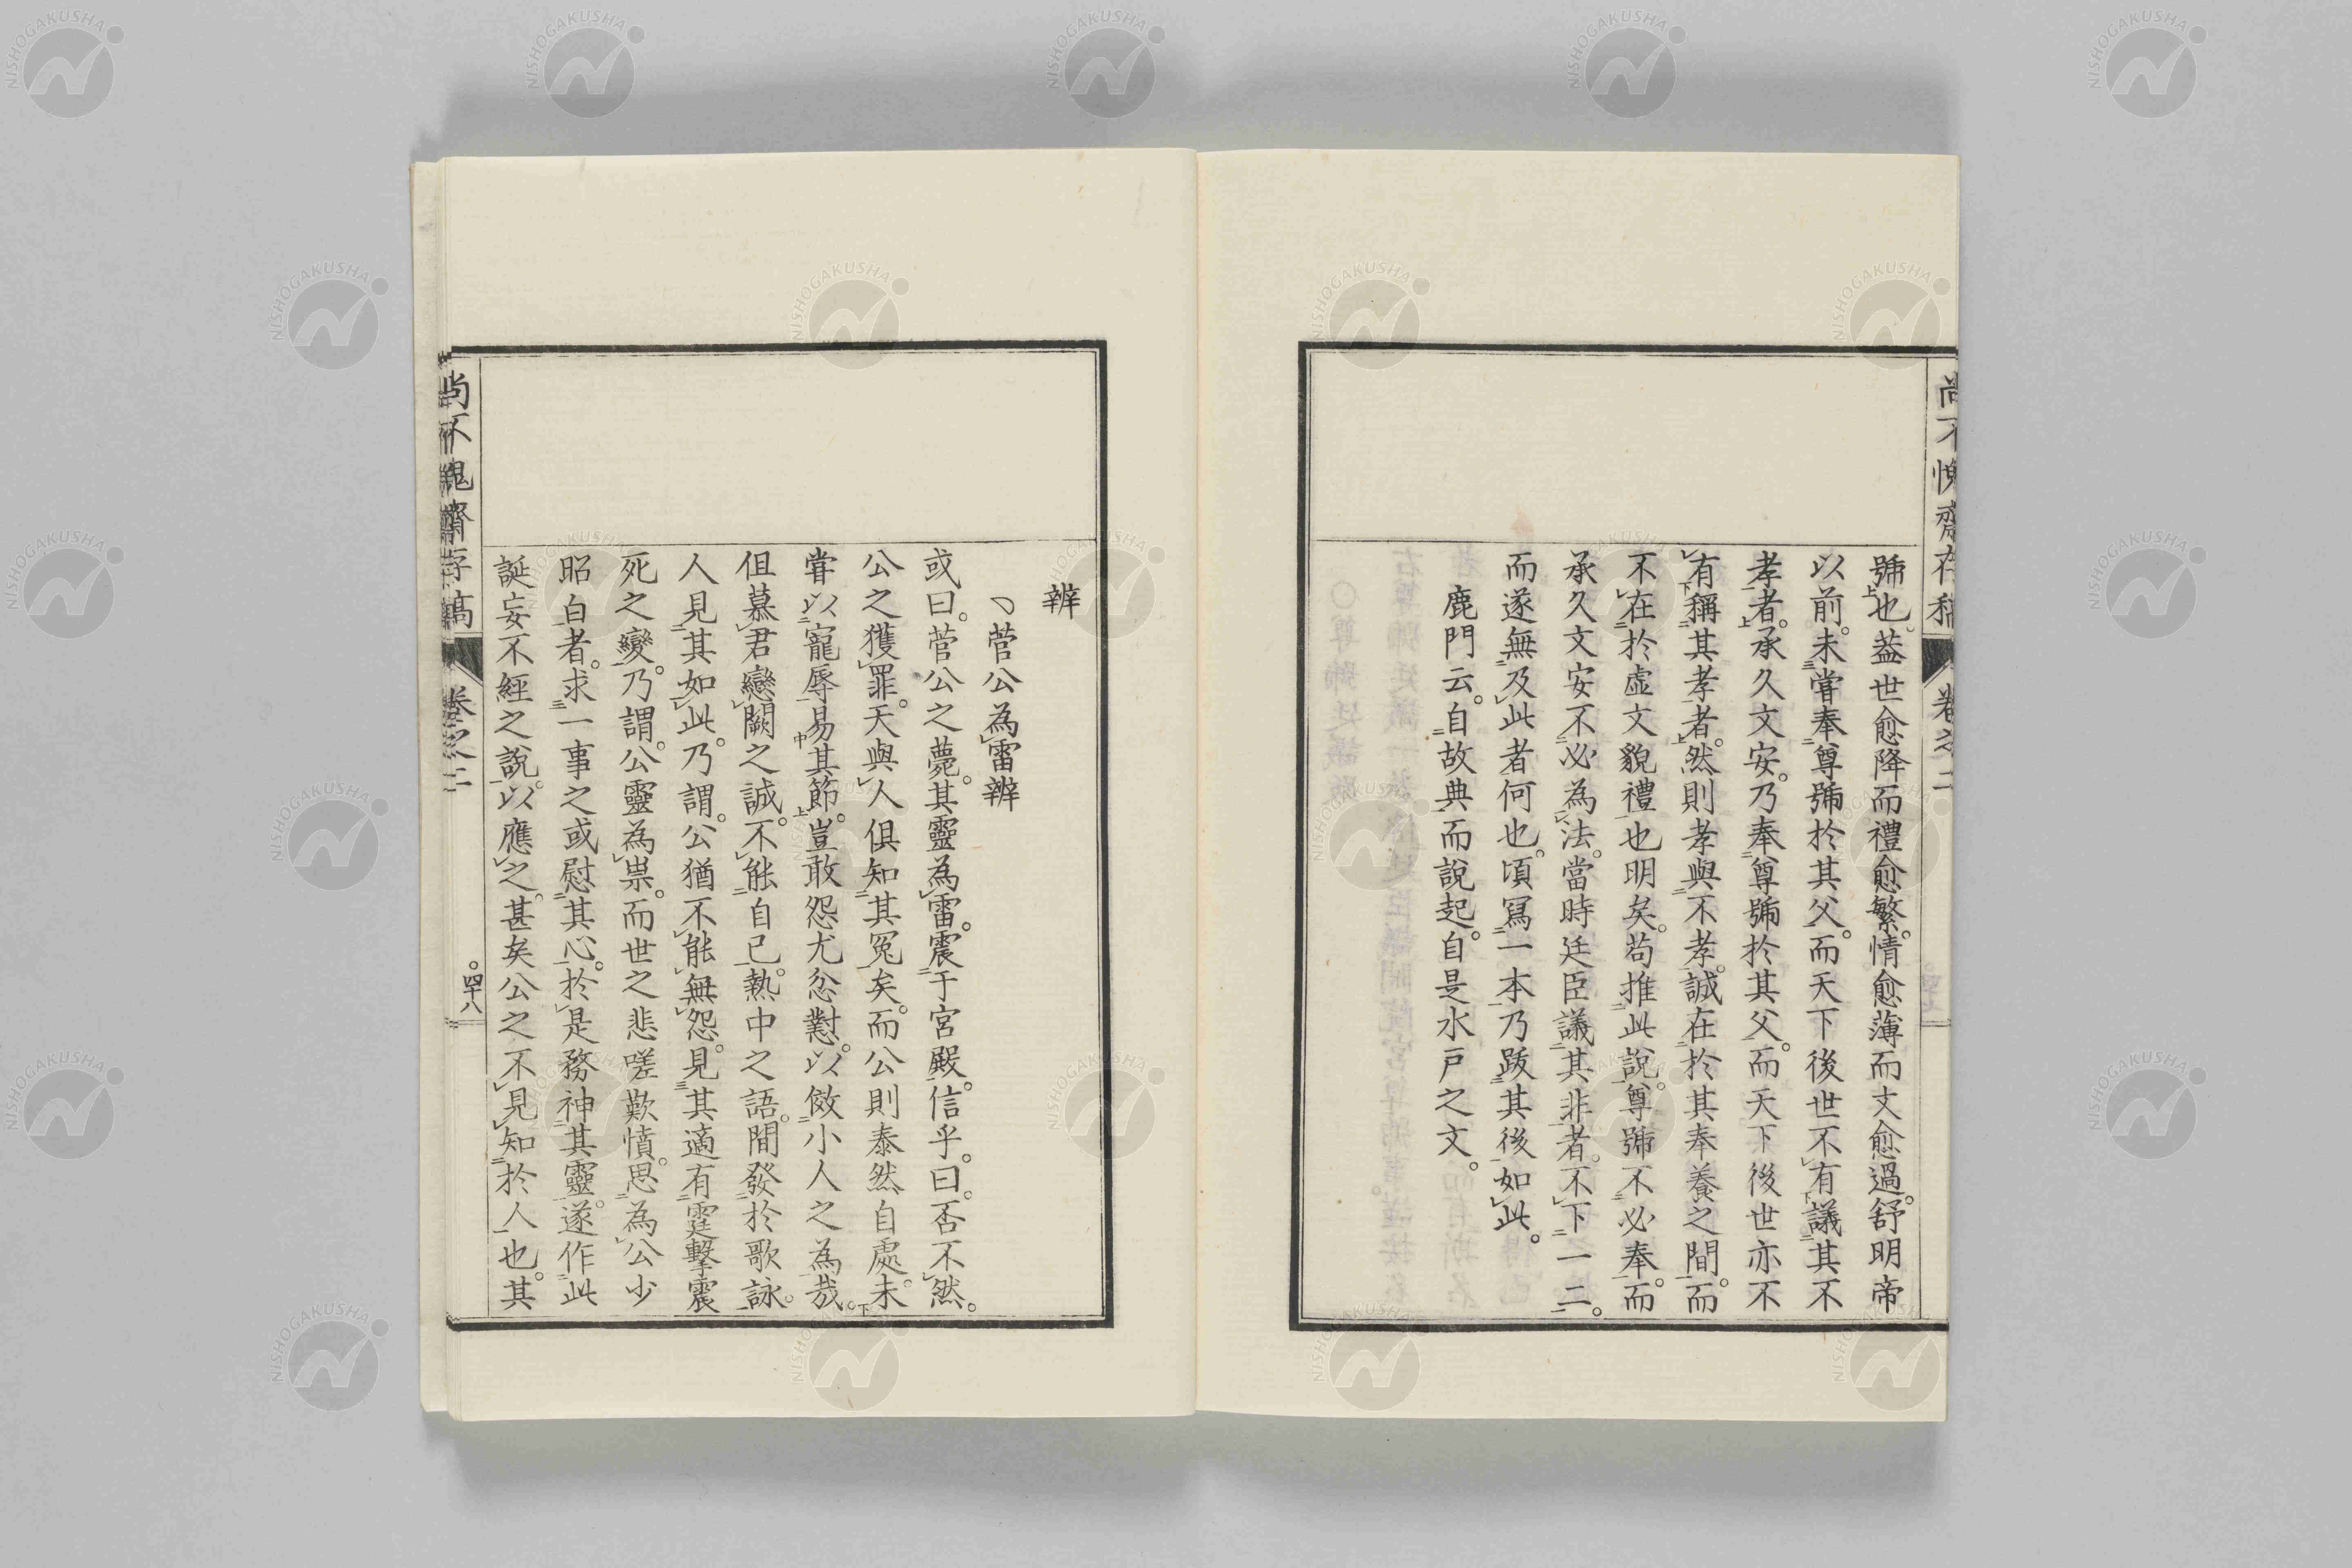 尚不愧齋存稿 卷之二
號也。葢世愈降而禮愈繁。情愈薄而文愈過。舒明帝
以前。未嘗奉尊號於其父。而天下後世不有議其不
孝者。承久文安。乃奉尊號於其父。而天下後世亦不
有稱其孝者。然則孝與不孝。誠在於其奉養之間。而
不在於虛文貌禮也明矣。苟推此說。尊號不必奉。而
承久文安不必為法。當時廷臣議其非者。不下一二。
而遂無及此者何也。頃寫一本乃跋其後如此。
鹿門云。自故典而說起。自是水戶之文。
辨
菅公為雷辨
或曰。菅公之薨。其靈為雷。震于宮殿。信乎。曰。否不然。
公之獲罪。天與人俱知其冤矣。而公則泰然自處。未
嘗以寵辱易其節。豈敢怨尤忿懟。以傚小人之為哉。
但慕君戀闕之誠。不能自已。熱中之語。間發於歌詠。
人見其如此。乃謂。公猶不能無怨。見其適有霆擊震
死之變。乃謂。公靈為祟。而世之悲嗟歎憤。思為公少
昭白者。求一事之或慰其心。於是務神其靈。遂作此
誕妄不經之說。以應之。甚矣公之不見知於人也。其
尚不愧齋存稿 卷之二 四十八
NISHOGAKUSHA